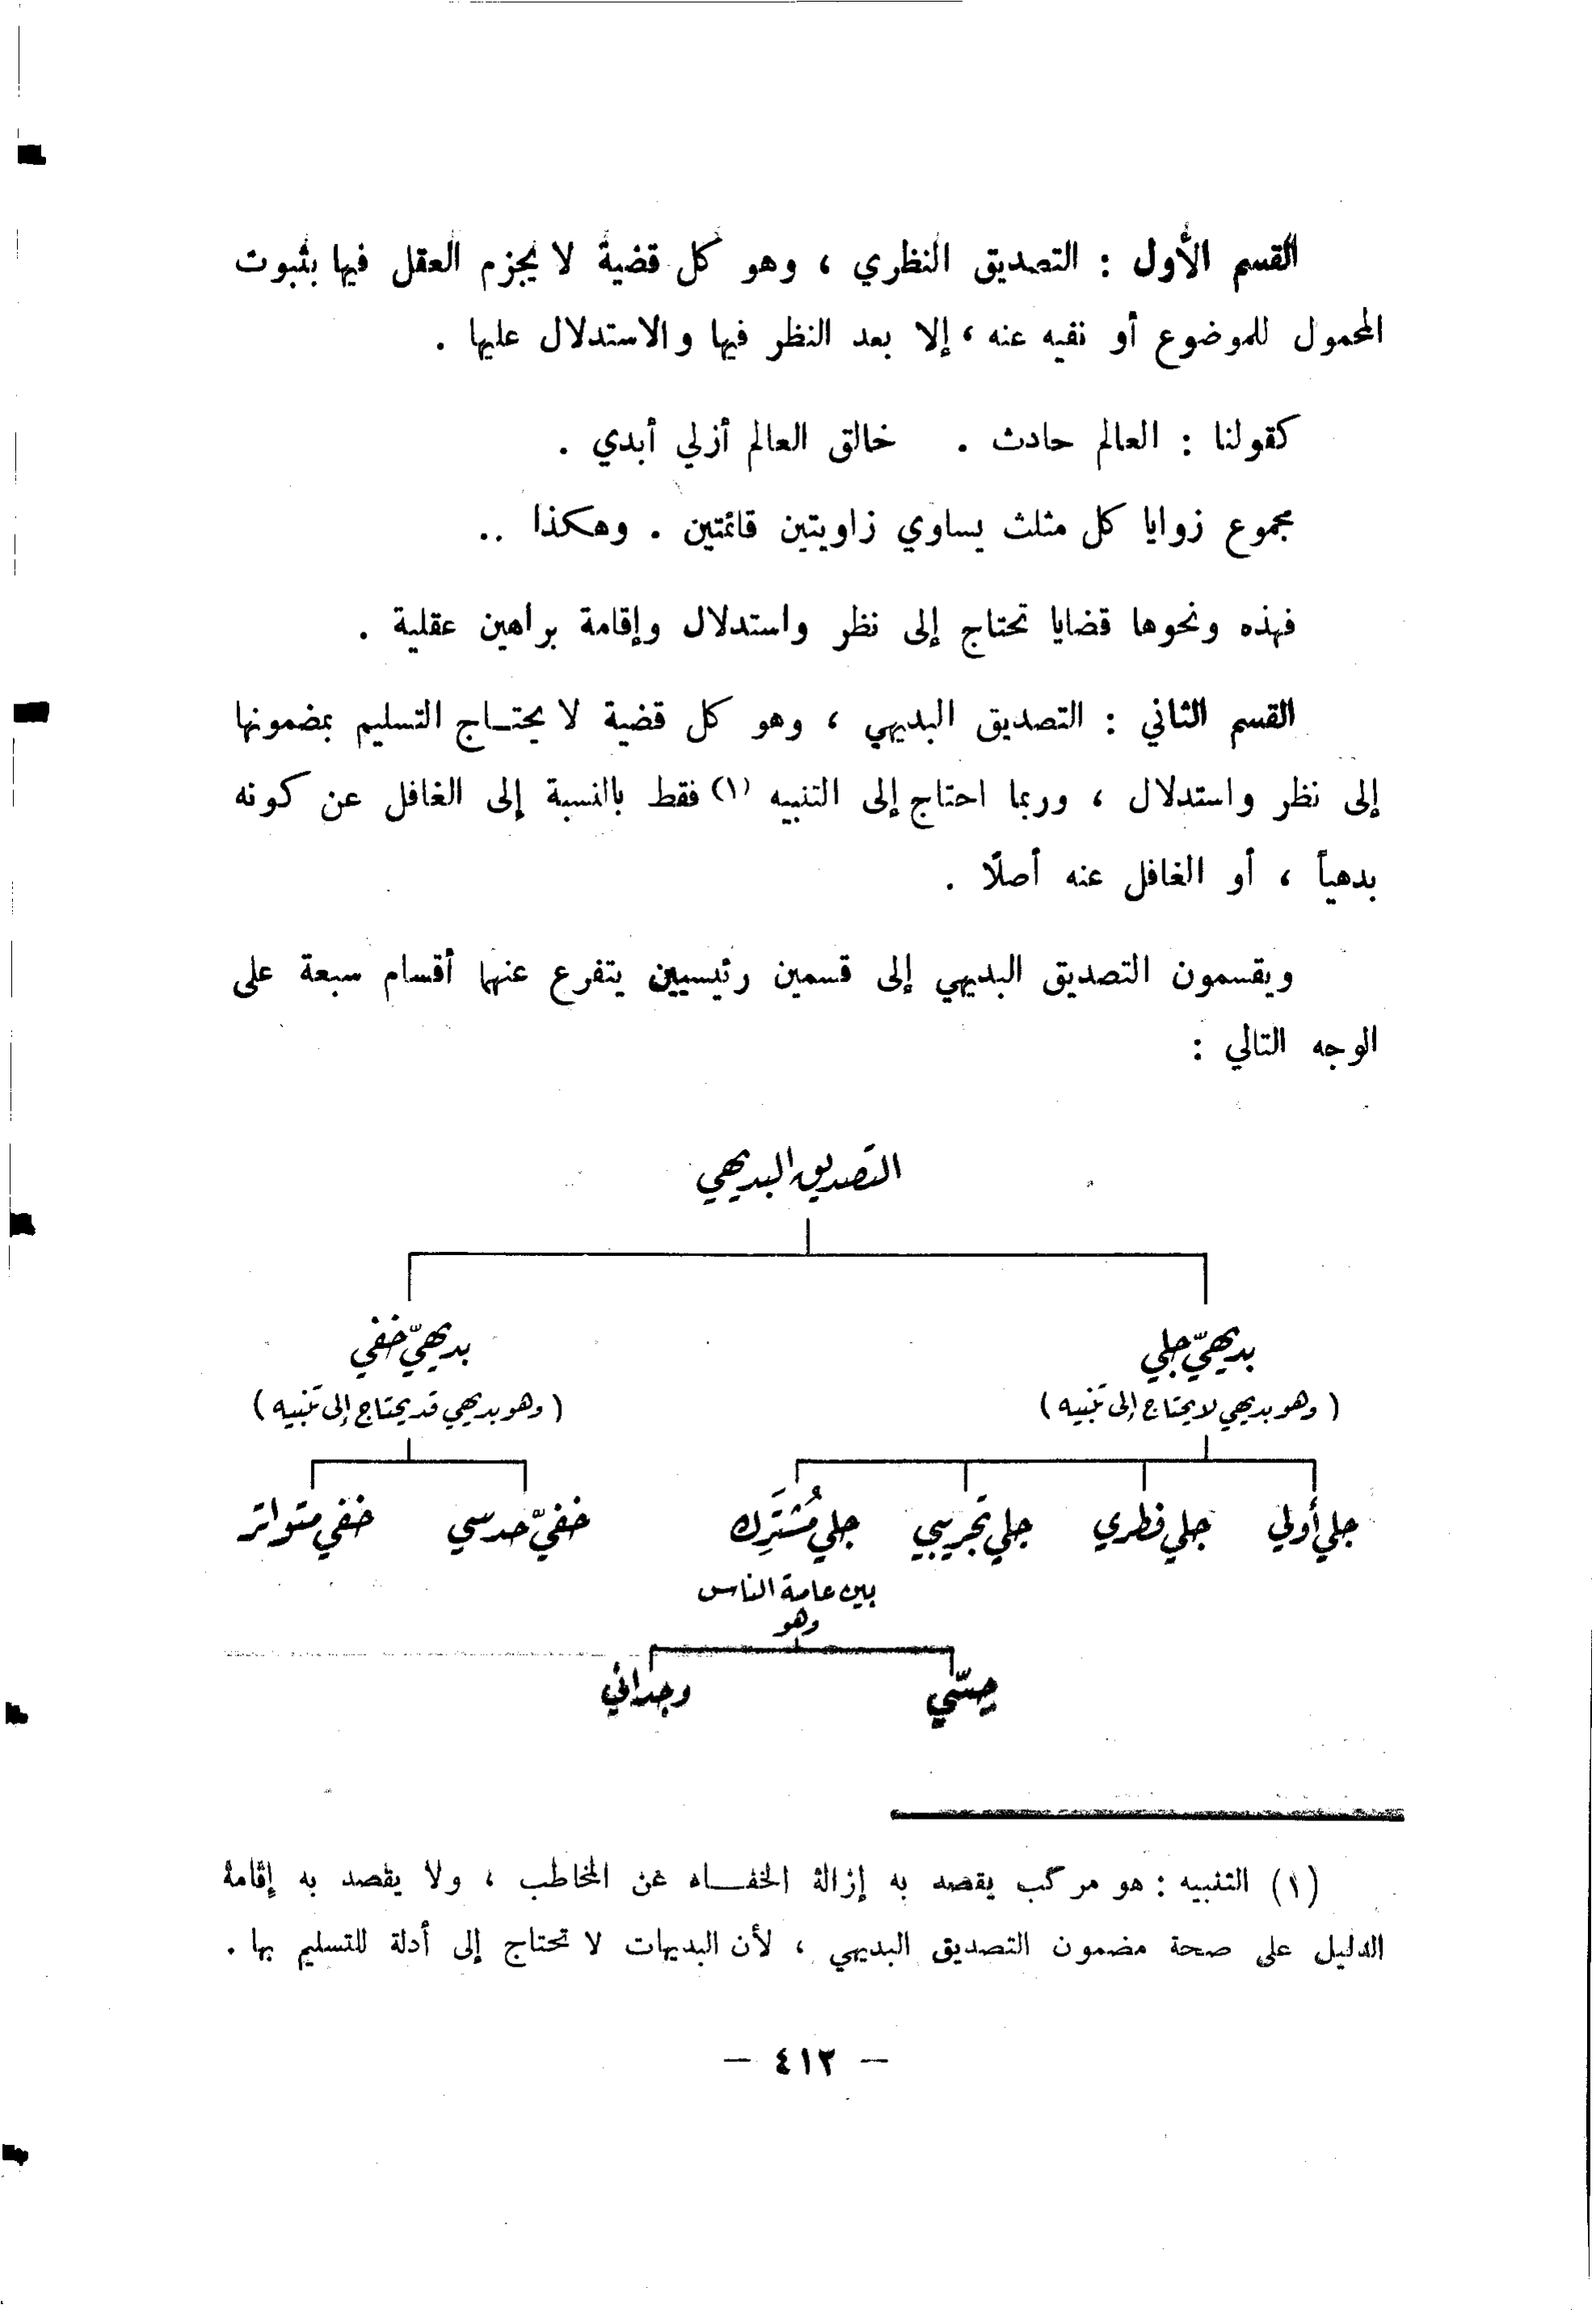 القسم الأول : التصديق النظري ، وهو كل قضية لا يجزم العقل فيها بثبوت
المحمول للموضوع أو نفيه عنه ، إلا بعد النظر فيها والاستدلال عليها .
كقولنا : العالم حادث . خالق العالم أزلي أبدي .
مجموع زوايا كل مثلث يساوي زاويتين قائمتين . وهكذا ..
فهذه ونحوها قضايا تحتاج إلى نظر واستدلال وإقامة براهين عقلية .
القسم الثاني : التصديق البديهي ، وهو كل قضية لا يحتـاج التسليم بمضمونها
إلى نظر واستدلال ، وربما احتاج إلى التنبيه (١) فقط بالنسبة إلى الغافل عن كونه
بدهياً ، أو الغافل عنه أصلًا .
ويقسمون التصديق البديهي إلى قسمين رئيسيين يتفرع عنهما أقسام سبعة على
الوجه التالي :
التصديق البديهي
بديهيّ جلي
بديهيّ خفي
( وهو بديهي لا يحتاج إلى تنبيه )
( وهو بديهي قد يحتاج إلى تنبيه )
جلي أولي
جلي فطري
جلي تجريبي
جلي مُشتَرِك
خفيّ حدسي
خفي متواتر
بين عامة الناس
وهو
حسّي
وجداني
(١) التنبيه : هو مركب يقصد به إزالة الخفـاء عن المخاطب ، ولا يقصد به إقامة
الدليل على صحة مضمون التصديق البديهي ، لأن البديهات لا تحتاج إلى أدلة للتسليم بها .
— ٤١٢ —